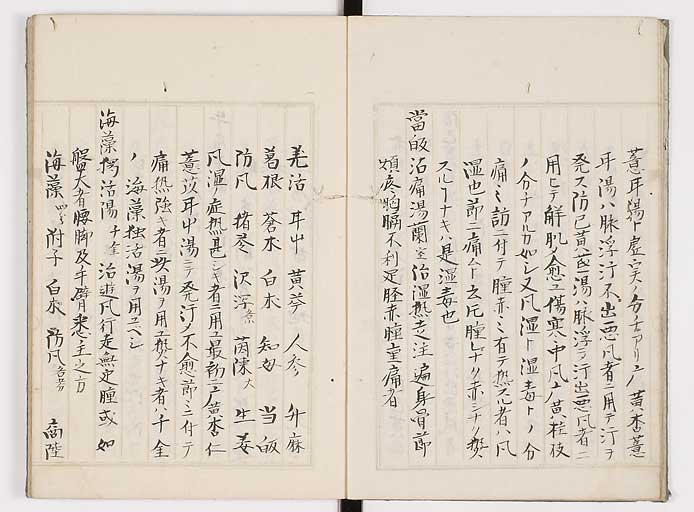 薏耳陽ト虚実ノ分チアリテ麻黄杏薏
耳湯ハ脉浮汗不出悪風者ニ用テ汗ヲ
発ス防已黄芪湯ハ脉浮テ汗出悪風者ニ
用ヒテ解肌ノ愈
傷寒中風ニ麻黄桂枝
ノ分チアルカ如シ又凡湿ト湿毒トノ分
痛ミ訪ニ付テ腫赤ミ有テ熱
者ハ凡
湿也節ニ痛ムト云𪜈腫レナク赤ミナク熱
スル
ナキハ是湿毒也
當皈沾痛湯蘭室治湿熱走注遍身骨節
煩疼胸膈不利足胫赤腫重痛者
羌活 耳艸 黄芩 人参 升麻
葛根 蒼朮 白朮 知母 当皈
防凡 猪苓 沢泻 茵陳 生姜
凡湿ノ症熱甚シキ者ニ用
最初ニ麻黄杏仁
薏苡耳艸湯ニテ発汗
不愈節ニニ付テ
痛熱強キ者ニ此湯ヲ用
熱ナキ者ハ千金
ノ海藻独活湯ヲ用
ヘシ
海藻
湯千金治遊凡行走無定腫或如
盤大者
腰脚及手臂悉主之方
海藻 附子 白朮 防凡 商陸